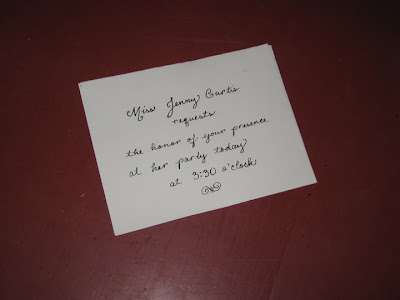 Miss Jenny Curtis
requests
the honor of your presence
at her party today
at 3:30 o'clock